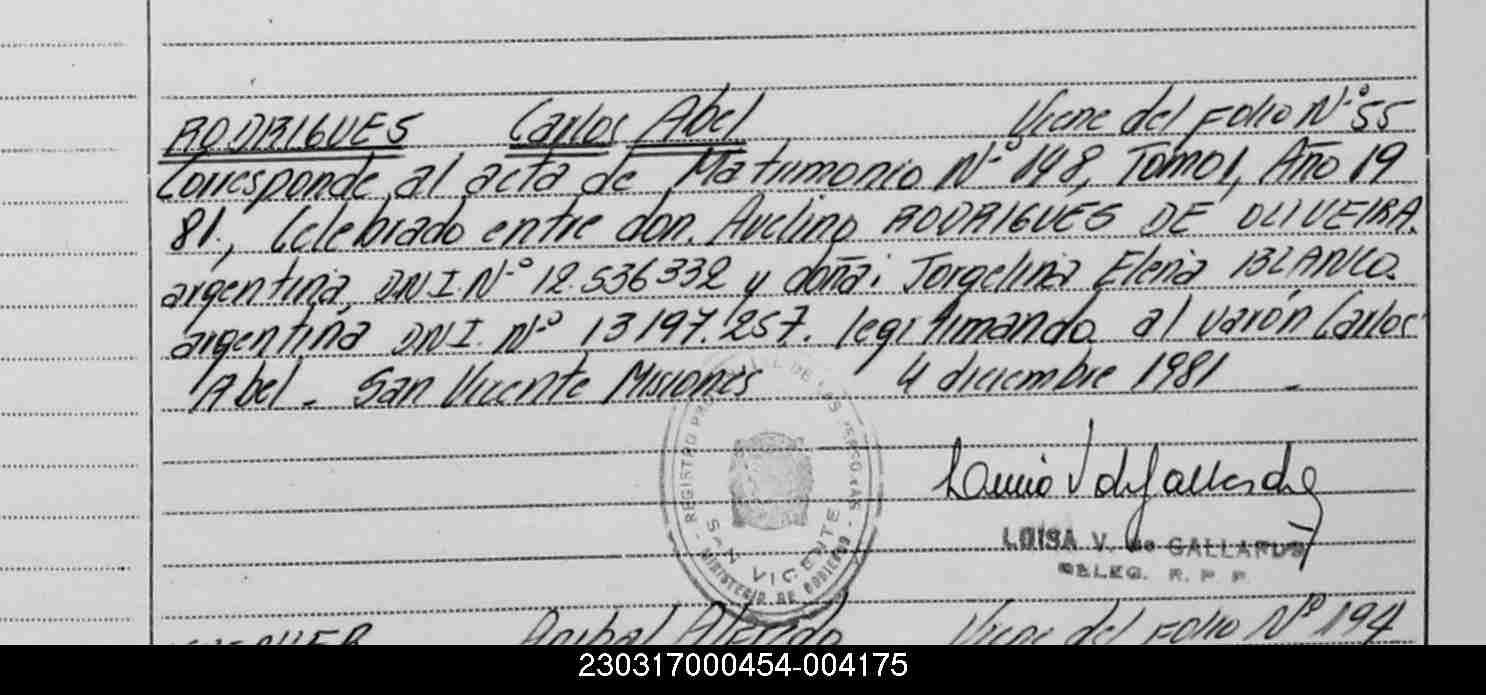 RODRIGUES Carlos Abel Viene del Folio Nº 55
Corresponde al acta de Matrimonio Nº 148, Tomo 1, Año 19
81., Celebrado entre don. Avelino RODRIGUES DE OLIVEIRA.
argentina, DNI. Nº 12.536332 y doña: Jorgelina Elena BLANCO.
argentina DNI. Nº 13197.257. legitimando al varón Carlos
Abel. San Vicente Misiones 4 diciembre 1981 -
REGISTRO DE LAS PERSONAS
SAN VICENTE
MINISTERIO DE GOBIERNO
LUISA V. de GALLARDO
DELEG. R. P. P.
Anibal Alfredo Viene del Folio Nº 194
230317000454-004175